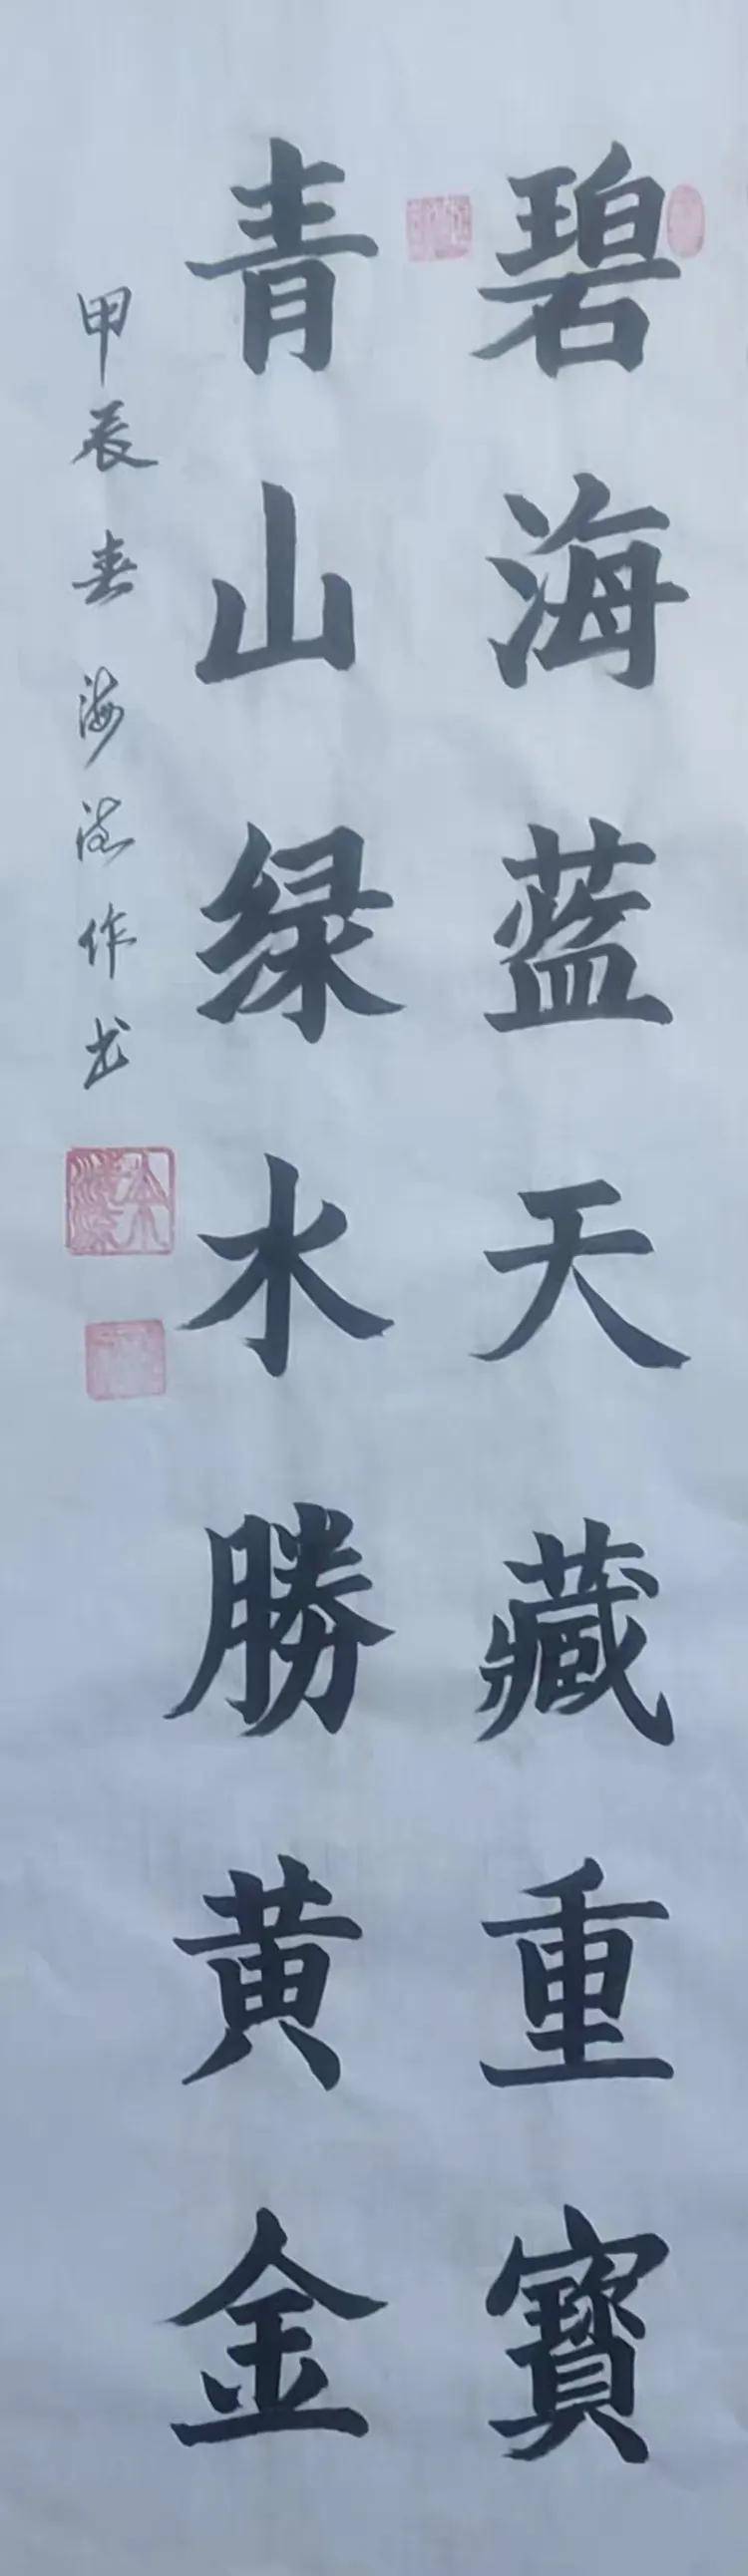 碧海蓝天藏重寶
青山绿水勝黄金
甲辰春海法作书